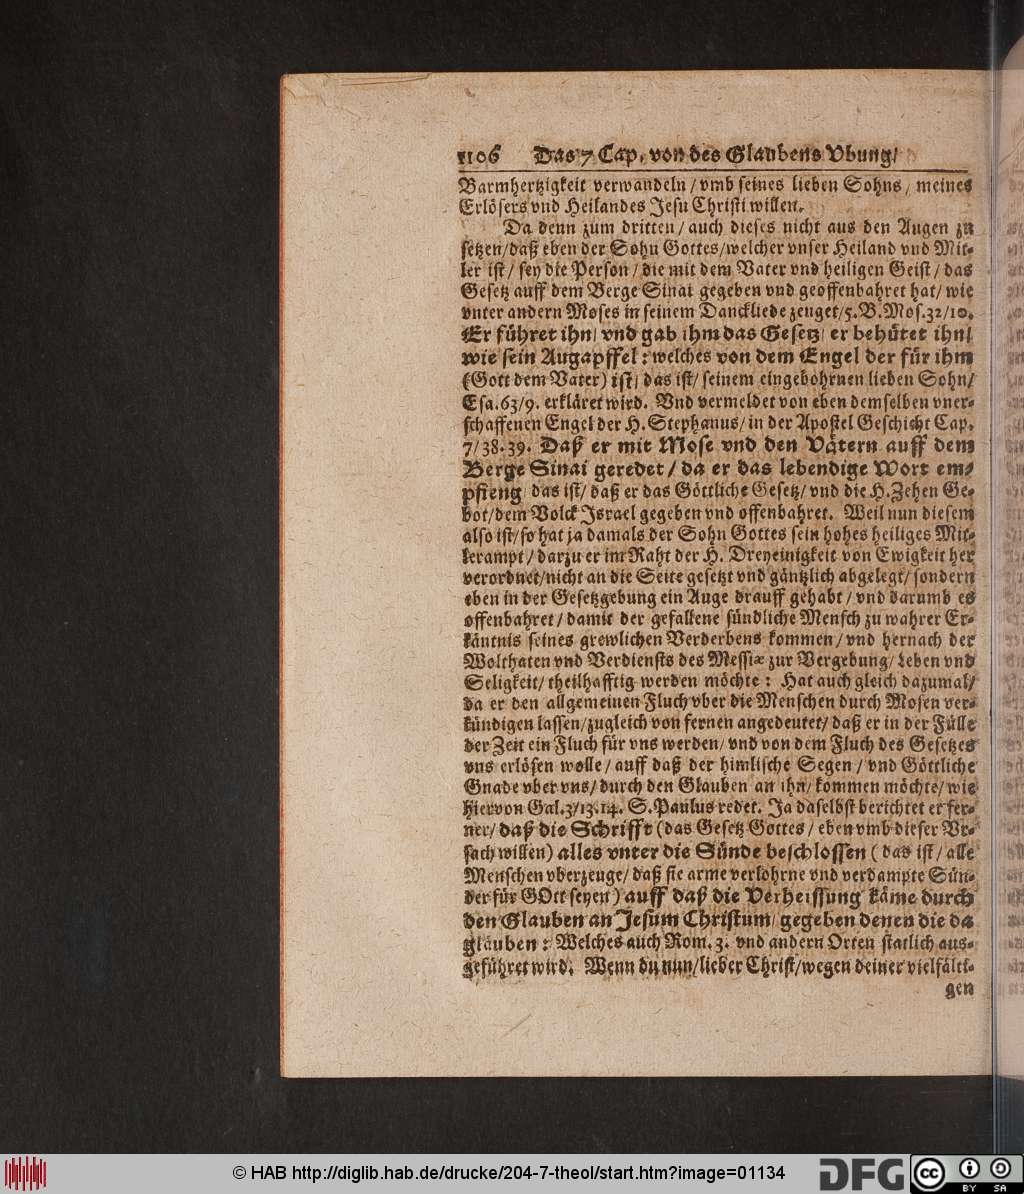 1106 Das 7 Cap. von des Glaubens Vbung/
Barmhertzigkeit verwandeln / vmb seines lieben Sohns / meines
Erlösers vnd Heilandes Jesu Christi willen.
Da denn zum dritten / auch dieses nicht aus den Augen zu
setzen/daß eben der Sohn Gottes/welcher vnser Heiland vnd Mit-
ler ist / sey die Person / die mit dem Vater vnd heiligen Geist / das
Gesetz auff dem Berge Sinai gegeben vnd geoffenbahret hat/ wie
vnter andern Moses in seinem Danckliede zeuget/5. B. Mos. 32/10.
Er führet ihn/ vnd gab ihm das Gesetz/ er behütet ihn/
wie sein Augapffel: welches von dem Engel der für ihm
(Gott dem Vater) ist/ das ist/ seinem eingebohrnen lieben Sohn/
Esa. 63/9. erkläret wird. Vnd vermeldet von eben demselben vner-
schaffenen Engel der H. Stephanus/ in der Apostel Geschicht Cap.
7/38.39. Daß er mit Mose vnd den Vätern auff dem
Berge Sinai geredet / da er das lebendige Wort em-
pfieng/ das ist/ daß er das Göttliche Gesetz/ vnd die H. Zehen Ge-
bot/dem Volck Israel gegeben vnd offenbahret. Weil nun diesem
also ist/so hat ja damals der Sohn Gottes sein hohes heiliges Mit-
lerampt / darzu er im Raht der H. Dreyeinigkeit von Ewigkeit her
verordnet/nicht an die Seite gesetzt vnd gäntzlich abgelegt/ sondern
eben in der Gesetzgebung ein Auge drauff gehabt / vnd darumb es
offenbahret / damit der gefallene sündliche Mensch zu wahrer Er-
käntnis seines grewlichen Verderbens kommen / vnd hernach der
Wolthaten vnd Verdiensts des Messiæ zur Vergebung/ Leben vnd
Seligkeit/ theilhafftig werden möchte: Hat auch gleich dazumal/
da er den allgemeinen Fluch vber die Menschen durch Mosen ver-
kündigen lassen/zugleich von fernen angedeutet/ daß er in der Fülle
der Zeit ein Fluch für vns werden/ vnd von dem Fluch des Gesetzes
vns erlösen wolle / auff daß der himlische Segen / vnd Göttliche
Gnade vber vns/ durch den Glauben an ihn/ kommen möchte/ wie
hiervon Gal. 3/13.14. S. Paulus redet. Ja daselbst berichtet er fer-
ner/ daß die Schrifft (das Gesetz Gottes / eben vmb dieser Vr-
sach willen) alles vnter die Sünde beschlossen ( das ist / alle
Menschen vberzeuge/ daß sie arme verlohrne vnd verdampte Sün-
der für GOtt seyen ) auff daß die Verheissung käme durch
den Glauben an Jesum Christum/ gegeben denen die da
gläuben: Welches auch Rom. 3. vnd andern Orten statlich aus-
geführet wird. Wenn du nun/lieber Christ/wegen deiner vielfälti-
gen
© HAB http://diglib.hab.de/drucke/204-7-theol/start.htm?image=01134
DFG
cc
BY SA